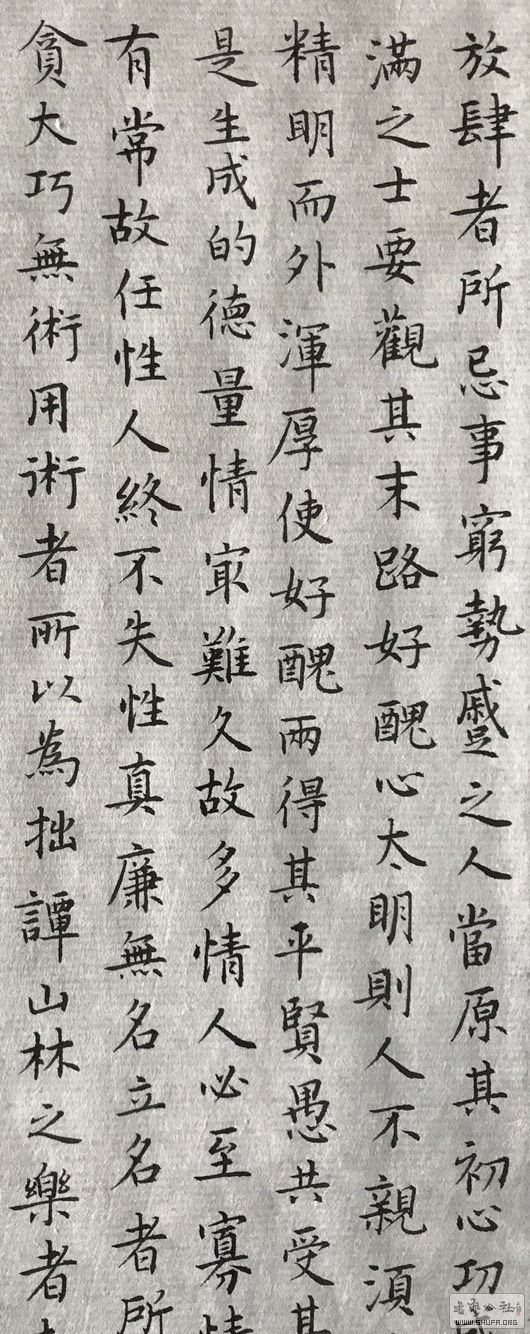 放肆者所忌事窮勢蹙之人當原其初心功
滿之士要觀其末路好醜心太明則人不親須
精明而外渾厚使好醜兩得其平賢愚共受其
是生成的德量情最難久故多情人必至寡情
有常故任性人終不失性真廉無名立名者所
貪大巧無術用術者所以為拙譚山林之樂者
书艺公社
WWW.SHUFA.ORG